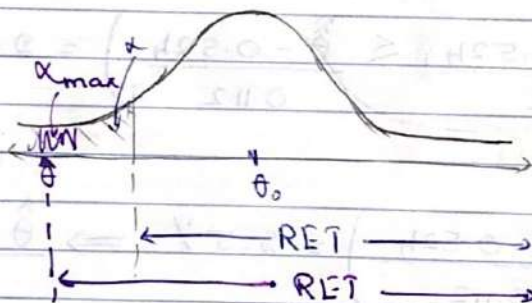 α
αmax
θ θ₀
RET
RET